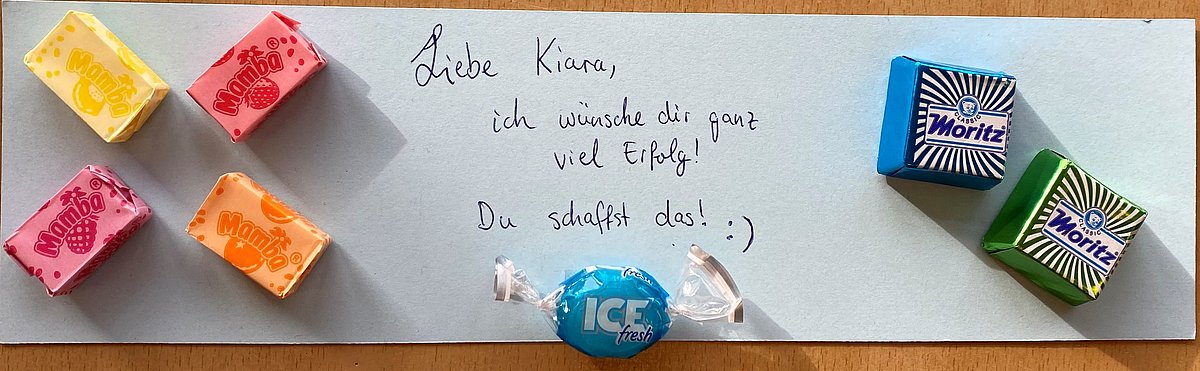 Mamba®
Mamba®
Mamba®
Mamba®
Liebe Kiara,
ich wünsche dir ganz
viel Erfolg!
Du schaffst das! :)
fresh
ICE
fresh
CLASSIC
Moritz
CLASSIC
Moritz